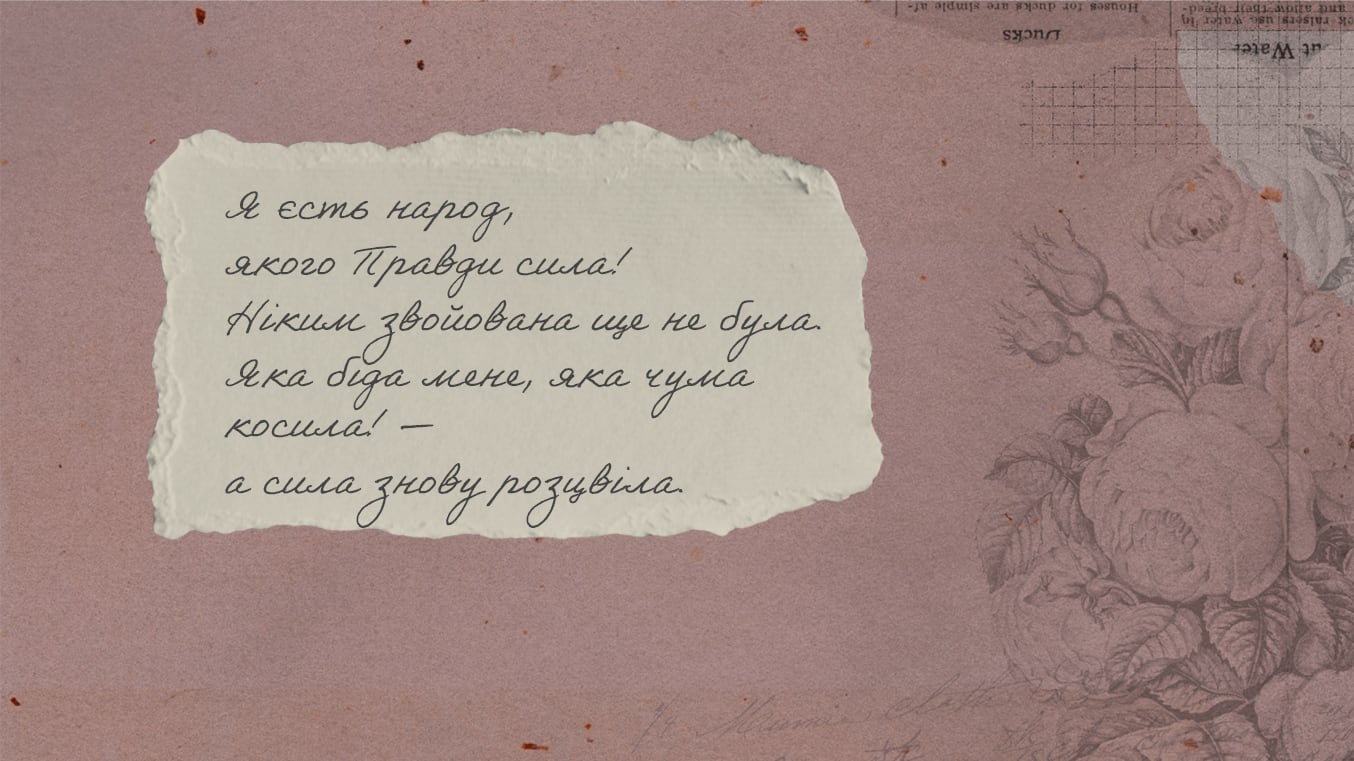 Houses for ducks are simple af-
Ducks
and allow their breed-
raisers use. water in
ut Water
Я єсть народ,
якого Правди сила!
Ніким звойована ще не була.
Яка біда мене, яка чума
косила! —
а сила знову розцвіла.